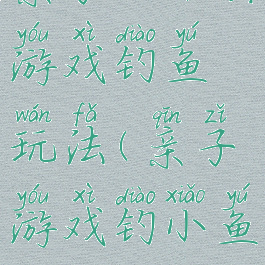 yóu xì diào yú
游戏钓鱼
wán fǎ qīn zǐ
玩法(亲子
yóu xì diào xiǎo yú
游戏钓小鱼